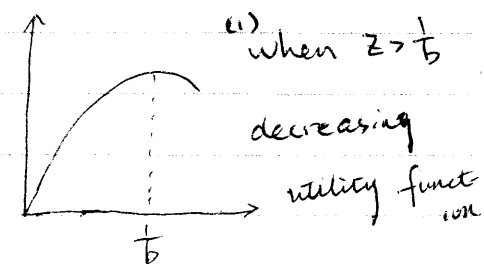 (1)
when z > 1/b
decreasing
utility funct-
ion
1/b